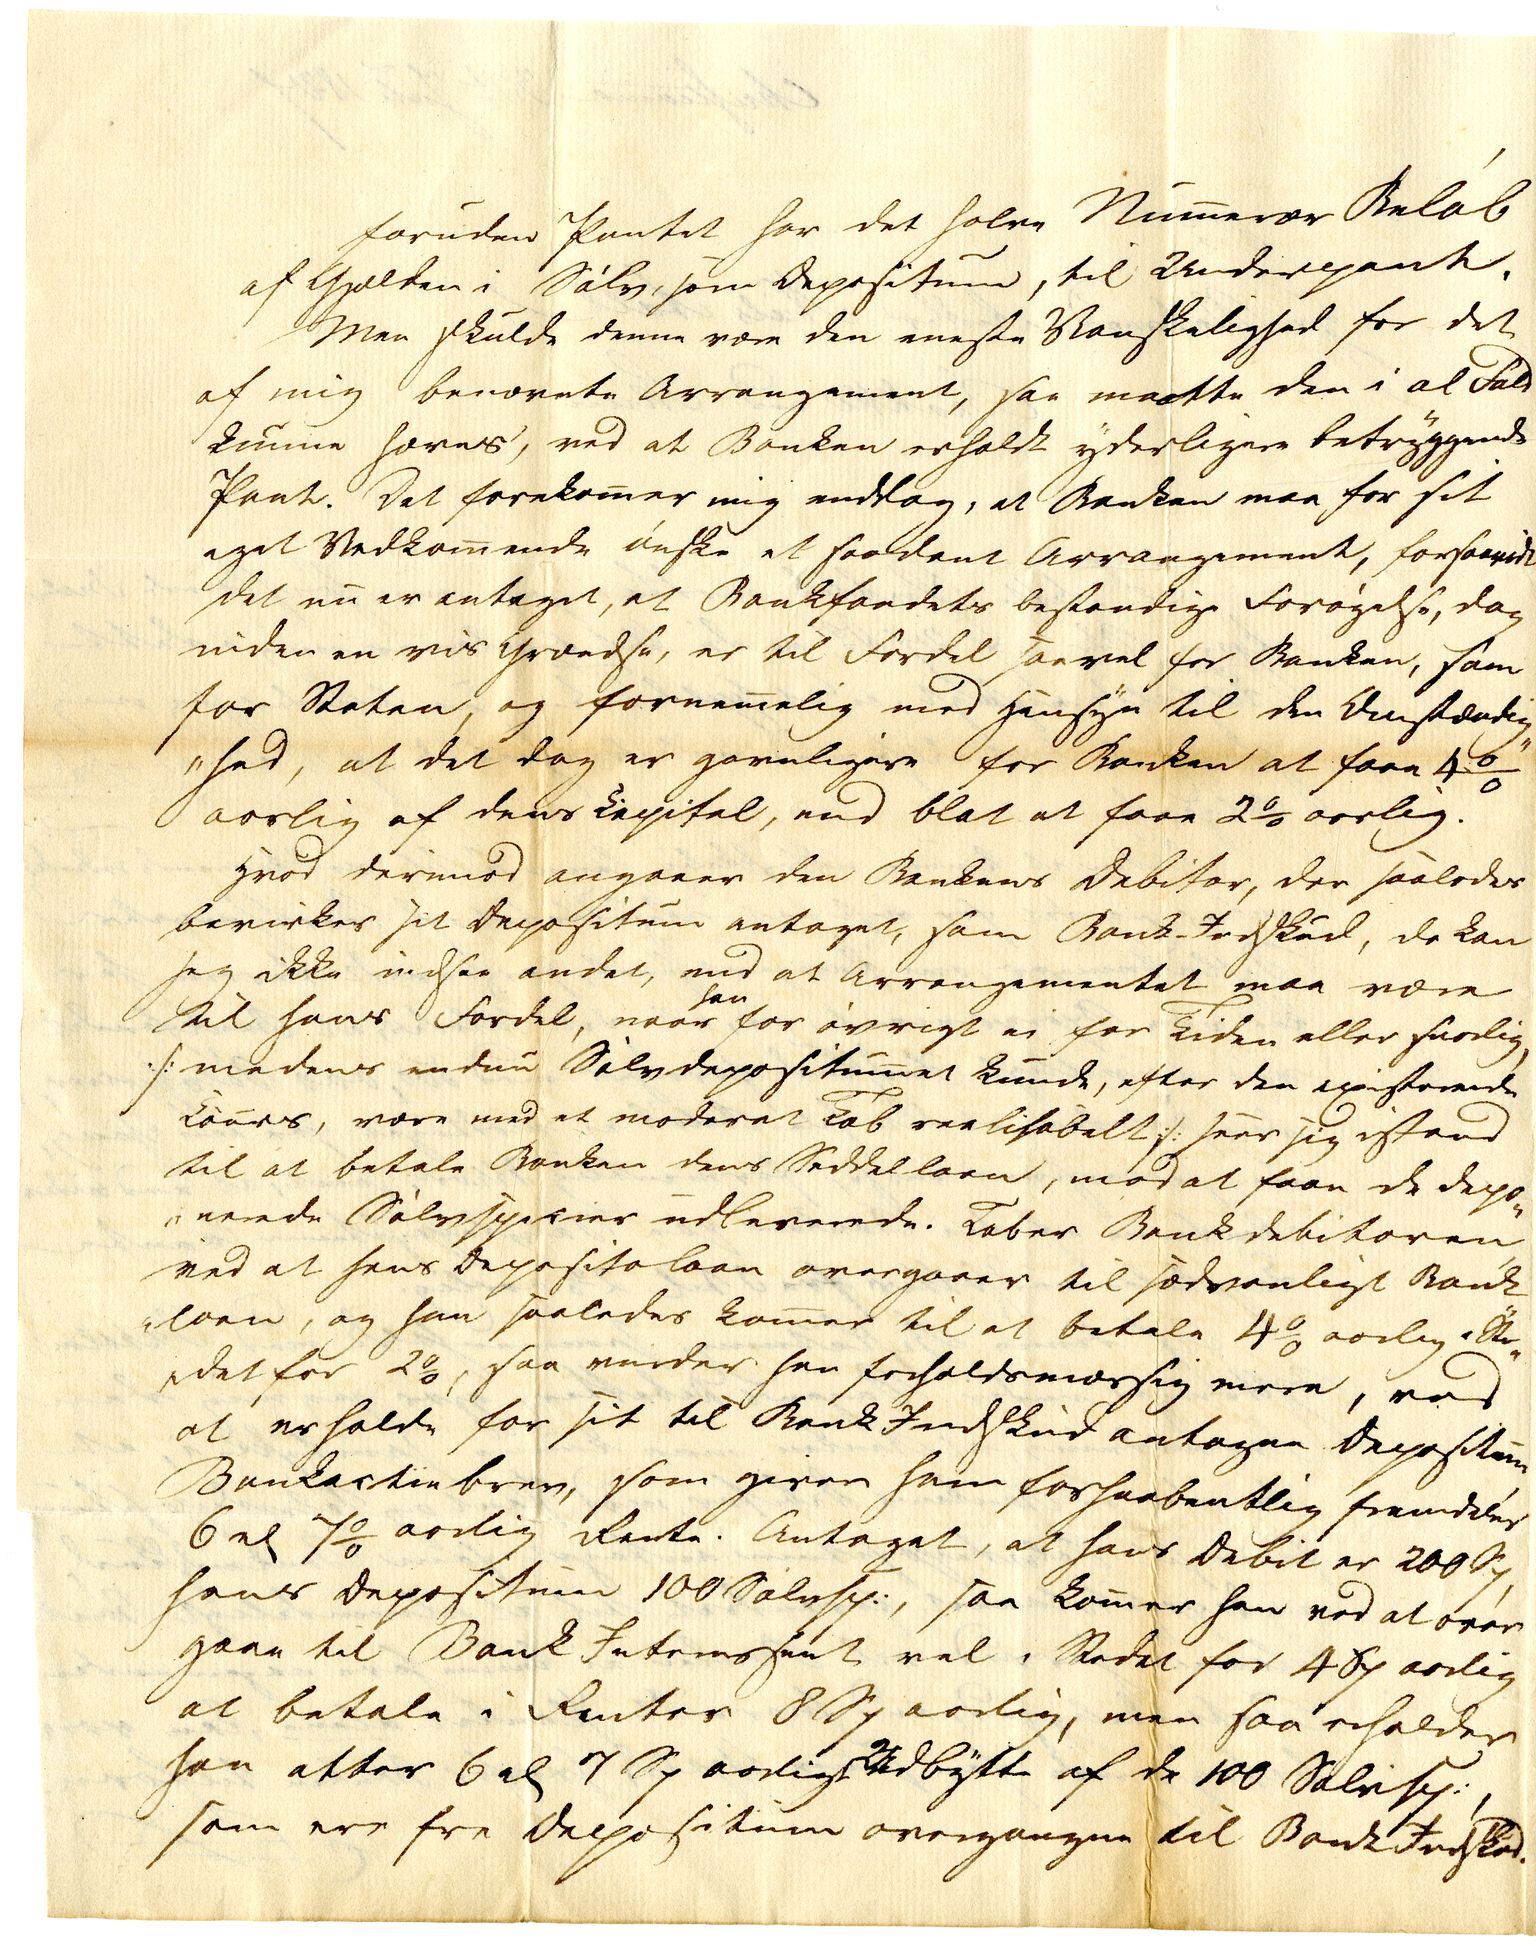 foruden Pantet har det halve Numerær Beløb
af Gjælden i Sølv, som Depositum, til Underpant.
Men skulde denne være den eneste Vanskelighed for det
af mig benævnte Arrangement, saa maatte den i al Fald
kunne hæves, ved at Banken erholdt yderligere betryggende
Pant. Det forekom̅er mig enddog, at Banken maa for sit
eget Vedkom̅ende ønske et saadant Arrangement, forsaavidt
det nu er antaget, at Bankfondets bestandige Forøgelse, dog
inden en vis Grændse, er til Fordel saavel for Banken, som
for Staten, og fornem̅elig med Hensyn til den Omstændig„
„hed, at det dog er gavnligere for Banken at faae 4 %
aarlig af dens Capital, end blot at faae 2 % aarlig.
Hvad derimod angaaer den Bankens Debitor, der saaledes
bevirker sit Depositum antaget, som Bank-Indskud, da kan
jeg ikke indsee andet, end at Arrangementet maa være
til hans Fordel, naar han for øvrigt ei for Tiden eller snarlig,
:/: medens endnu Sølvdepositum̅et kunde, efter den existerende
Cours, være med et moderat Tab realisabelt :/: seer sig istand
til at betale Banken dens Seddellaan, mod at faae de depo„
„nerede Sølvspecier udleverede. Taber Bankdebitoren
ved at hans Depositolaan overgaaer til sædvanligt Bank
„laan, og han saaledes kom̅er til at betale 4 % aarlig i Ste„
„det for 2 %, saa vinder han forholdsmæssig mere, ved
at erholde for sit til Bank Indskud antagne Depositum
Bankactiebrev, som giver ham forhaabentlig fremdeles
6 al 7 % aarlig Rente. Antaget, at hans Debit er 200 Sp,
hans Depositum 100 Sølvsp:, saa kom̅er han ved at over
gaae til Bank Interessent vel i Stedet for 4 Sp aarlig
at betale i Renter 8 Sp aarlig, men saa erholder
han atter 6 al 7 Sp aarligt Udbytte af de 100 Sølvsp:,
som ere fra Depositum overgangne til Bank Indskud.